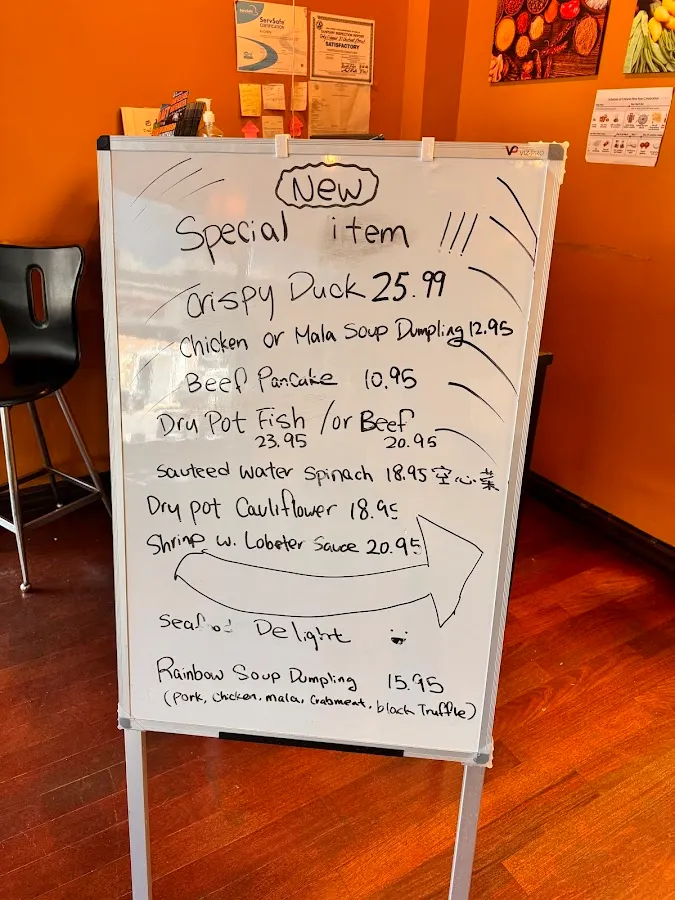 ServSafe
CERTIFICATION
SATISFACTORY
VIZ-PRO
New
Special item !!!
Crispy Duck 25.99
Chicken or Mala Soup Dumpling 12.95
Beef Pancake 10.95
Dry Pot Fish /or Beef
23.95 20.95
Sauteed Water Spinach 18.95 空心菜
Dry pot Cauliflower 18.95
Shrimp w. Lobster Sauce 20.95
Seafood Delight
Rainbow Soup Dumpling 15.95
(Pork, chicken, mala, Crabmeat, black Truffle)